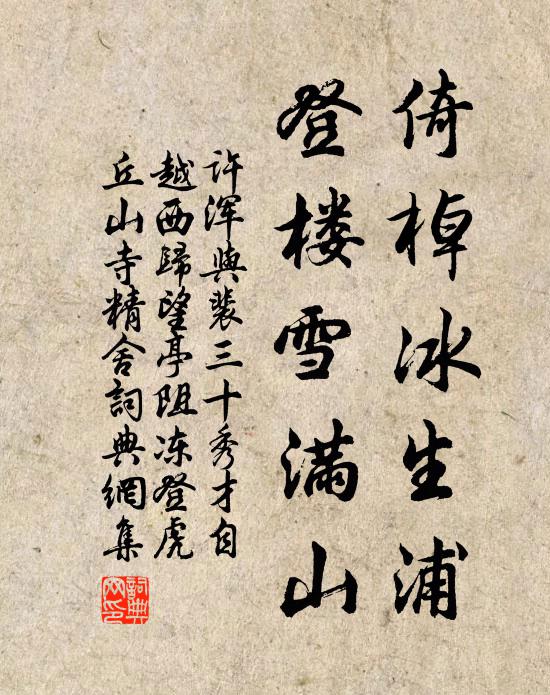 倚棹冰生浦
登楼雪满山
许浑與裴三十秀才自
越西歸望亭阻冻登虎
丘山寺精舍詞典網集
詞典
网印